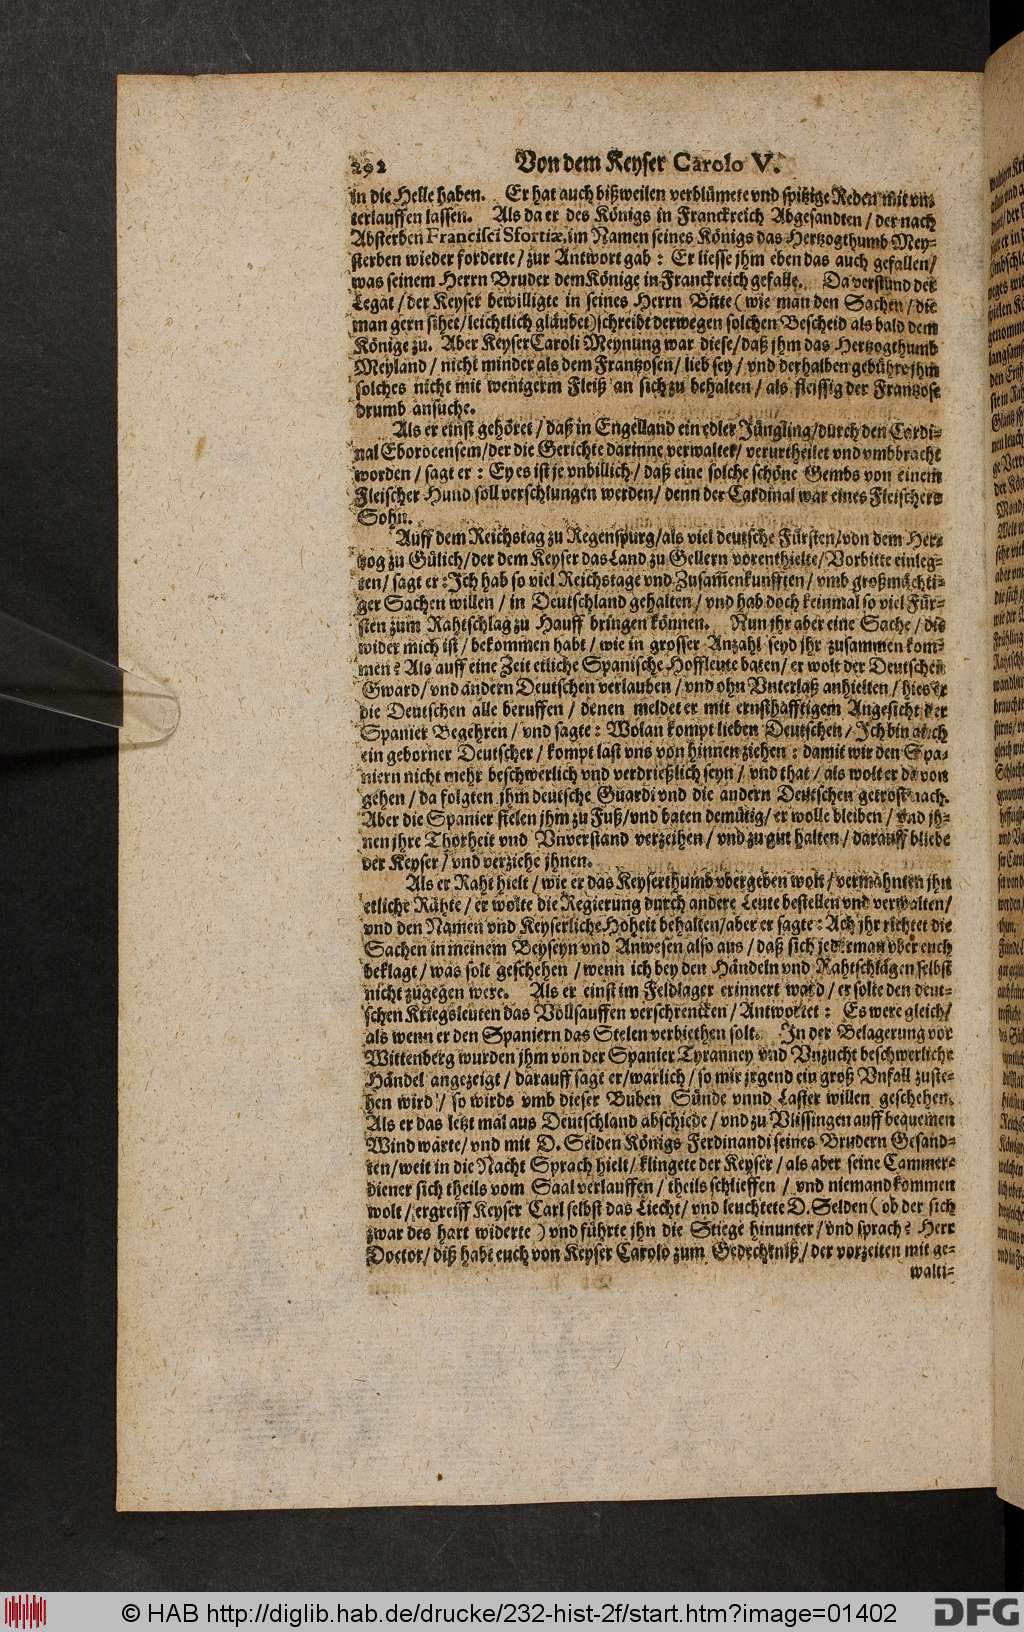 292 Von dem Keyser Carolo V.
in die Helle haben. Er hat auch bißweilen verblümete vnd spitzige Reden mit vn-
terlauffen lassen. Als da er des Königs in Franckreich Abgesandten / der nach
Absterben Francisci Sfortiæ, im Namen seines Königs das Hertzogthumb Mey-
sterben wieder forderte / zur Antwort gab : Er liesse jhm eben das auch gefallen /
was seinem Herrn Bruder dem Könige in Franckreich gefalle. Da verstund der
Legat / der Keyser bewilligte in seines Herrn Bitte ( wie man den Sachen / die
man gern sihet / leichtlich gläubet) schreibt derwegen solchen Bescheid als bald dem
Könige zu. Aber Keyser Caroli Meynung war diese / daß jhm das Hertzogthumb
Meyland / nicht minder als dem Frantzosen / lieb sey / vnd derhalben gebühre jhm
solches nicht mit wenigerm Fleiß an sich zu behalten / als fleissig der Frantzose
drumb ansuche.
Als er einst gehöret / daß in Engelland ein edler Jüngling / durch den Cardi-
nal Eborocensem / der die Gerichte darinne verwaltet / verurtheilet vnd vmbbracht
worden / sagt er : Ey es ist je vnbillich / daß eine solche schöne Gembs von einem
Fleischer Hund soll verschlungen werden / denn der Cardinal war eines Fleischers
Sohn.
Auff dem Reichstag zu Regenspurg / als viel deutsche Fürsten / von dem Her-
tzog zu Gülich / der dem Keyser das Land zu Gellern vorenthielte / Vorbitte einleg-
ten / sagt er : Ich hab so viel Reichstage vnd Zusam̃enkunfften / vmb großmächti-
ger Sachen willen / in Deutschland gehalten / vnd hab doch keinmal so viel Für-
sten zum Rahtschlag zu Hauff bringen können. Nun jhr aber eine Sache / die
wider mich ist / bekommen habt / wie in grosser Anzahl seyd jhr zusammen kom-
men ? Als auff eine Zeit etliche Spanische Hoffleute baten / er wolt der Deutschen
Gward / vnd andern Deutschen verlauben / vnd ohn Vnterlaß anhielten / hies er
die Deutschen alle beruffen / denen meldet er mit ernsthafftigem Angesicht der
Spanier Begehren / vnd sagte : Wolan kompt lieben Deutschen / Ich bin auch
ein geborner Deutscher / kompt last vns von hinnen ziehen : damit wir den Spa-
niern nicht mehr beschwerlich vnd verdrießlich seyn / vnd that / als wolt er davon
gehen / da folgten jhm deutsche Guardi vnd die andern Deutschen getrost nach.
Aber die Spanier fielen jhm zu Fuß / vnd baten demütig / er wolle bleiben / vnd jh-
nen jhre Thorheit vnd Vnverstand verzeihen / vnd zu gut halten / darauff bliebe
der Keyser / vnd verziehe jhnen.
Als er Raht hielt / wie er das Keyserthumb vbergeben wolt / vermahnten jhn
etliche Rähte / er wolte die Regierung durch andere Leute bestellen vnd verwalten /
vnd den Namen vnd Keyserliche Hoheit behalten / aber er sagte : Ach jhr richtet die
Sachen in meinem Beyseyn vnd Anwesen also aus / daß sich jederman vber euch
beklagt / was solt geschehen / wenn ich bey den Händeln vnd Rahtschlägen selbst
nicht zugegen were. Als er einst im Feldlager erinnert ward / er solte den deut-
schen Kriegsleuten das Vollsauffen verschrencken / Antwortet : Es were gleich /
als wenn er den Spaniern das Stelen verbiethen solt. In der Belagerung vor
Wittenberg wurden jhm von der Spanier Tyranney vnd Vnzucht beschwerliche
Händel angezeigt / darauff sagt er / warlich / so mir jrgend ein groß Vnfall zuste-
hen wird / so wirds vmb dieser Buben Sünde vnnd Laster willen geschehen.
Als er das letzt mal aus Deutschland abschiede / vnd zu Vlissingen auff bequemen
Wind warte / vnd mit D. Selden Königs Ferdinandi seines Brudern Gesand-
ten / weit in die Nacht Sprach hielt / klingete der Keyser / als aber seine Cammer-
diener sich theils vom Saal verlauffen / theils schlieffen / vnd niemand kommen
wolt / ergreiff Keyser Carl selbst das Liecht / vnd leuchtete D. Selden ( ob der sich
zwar des hart widerte ) vnd führte jhn die Stiege hinunter / vnd sprach ? Herr
Doctor / diß habt euch von Keyser Carolo zum Gedechtniß / der vorzeiten mit ge-
walti-
© HAB http://diglib.hab.de/drucke/232-hist-2f/start.htm?image=01402
DFG